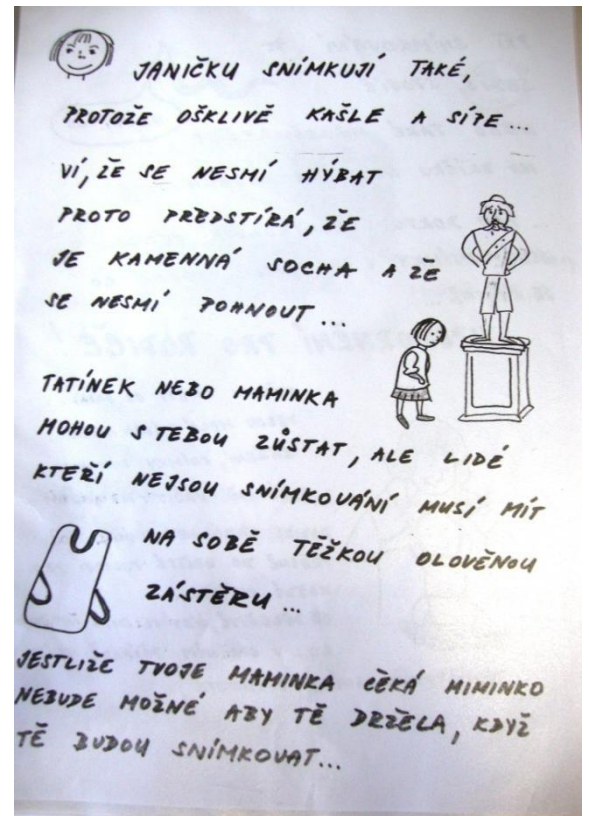 JANIČKU SNÍMKUJÍ TAKÉ,
PROTOŽE OŠKLIVĚ KAŠLE A SÍPE...
VÍ, ŽE SE NESMÍ HÝBAT
PROTO PŘEDSTÍRÁ, ŽE
JE KAMENNÁ SOCHA A ŽE
SE NESMÍ POHNOUT...
TATÍNEK NEBO MAMINKA
MOHOU S TEBOU ZŮSTAT, ALE LIDÉ
KTEŘÍ NEJSOU SNÍMKOVÁNÍ MUSÍ MÍT
NA SOBĚ TĚŽKOU OLOVĚNOU
ZÁSTĚRU...
JESTLIŽE TVOJE MAMINKA ČEKÁ MIMINKO
NEBUDE MOŽNÉ ABY TĚ DRŽELA, KDYŽ
TĚ BUDOU SNÍMKOVAT...